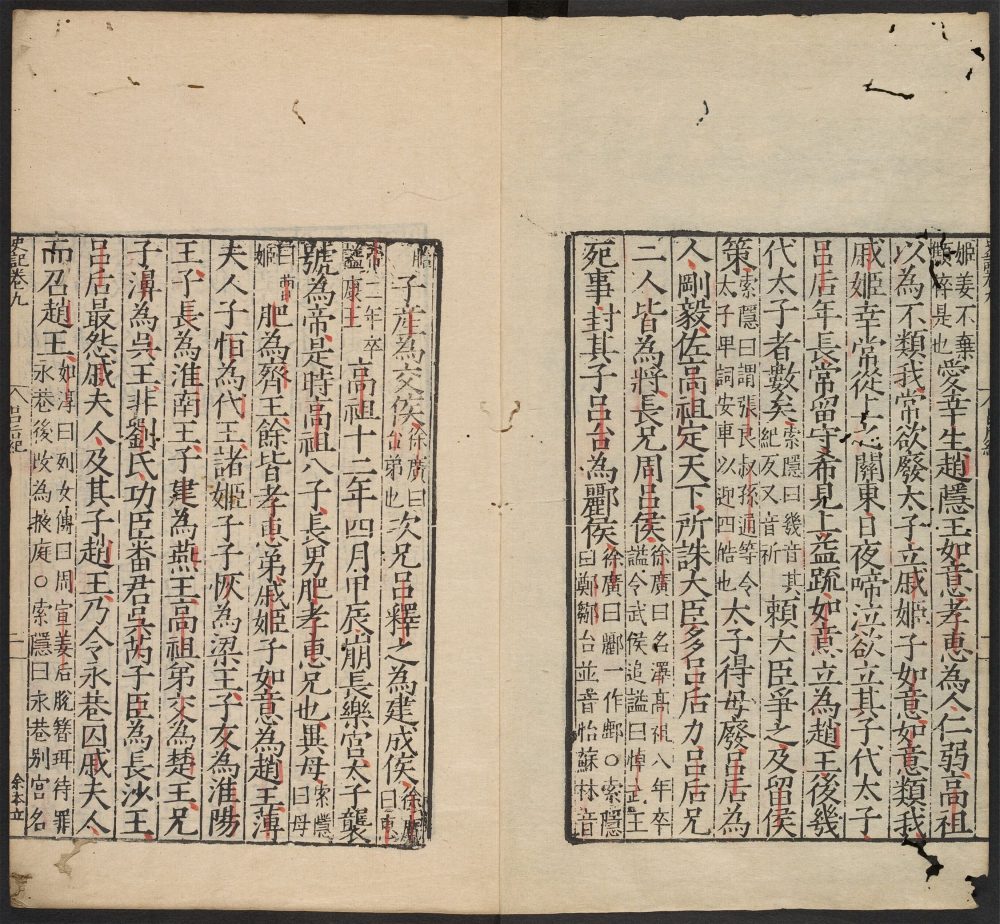 姬姜不棄顦悴是也愛幸生趙隱王如意孝惠為人仁弱高祖
以為不類我常欲廢太子立戚姬子如意如意類我
戚姬幸常從上之關東日夜啼泣欲立其子代太子
呂后年長常留守希見上益疏如意立為趙王後幾
代太子者數矣索隱曰幾音其紀反又音祈賴大臣爭之及留侯
策索隱曰謂張良叔孫通等令太子卑詞安車以迎四皓也太子得毋廢呂后為
人剛毅佐高祖定天下所誅大臣多呂后力呂后兄
二人皆為將長兄周呂侯徐廣曰名澤高祖八年卒謚令武侯追謚曰悼武王
死事封其子呂台為酈侯徐廣曰酈一作鄜○索隱曰鄭鄒台並音怡蘇林音
胎子產為交侯徐廣曰台弟也次兄呂釋之為建成侯徐廣曰惠
帝二年卒謚康王高祖十二年四月甲辰崩長樂宮太子襲
號為帝是時高祖八子長男肥孝惠兄也異母索隱曰母
曰曹姬肥為齊王餘皆孝惠弟戚姬子如意為趙王薄
夫人子恒為代王諸姬子子恢為梁王子友為淮陽
王子長為淮南王子建為燕王高祖弟交為楚王兄
子濞為吳王非劉氏功臣番君吳芮子臣為長沙王
呂后最怨戚夫人及其子趙王乃令永巷囚戚夫人
而召趙王如淳曰列女傳曰周宣姜后脫簪珥待罪永巷後改為掖庭○索隱曰永巷別宮名
史記卷九
呂后紀
二
余本立